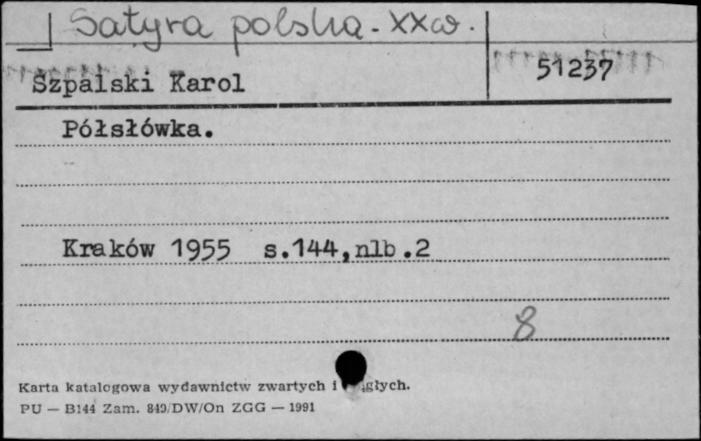 Satyra polska - XX w.
51237
Szpalski Karol
Półsłówka.
Kraków 1955 s.144,nlb.2
8
Karta katalogowa wydawnictw zwartych i
PU — B144 Zam. 849/DW/On ZGG — 1991